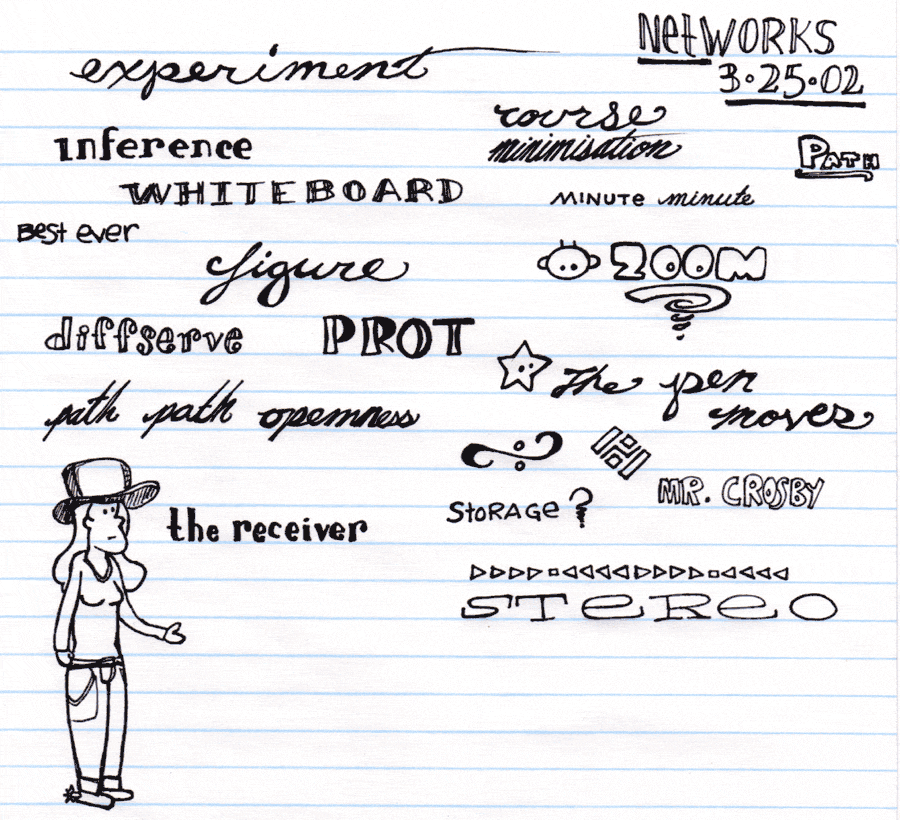 NetWORKS
3·25·02
experiment
course
minimisation
Path
inference
WHITEBOARD
MINUTE minute
Best ever
figure
ZOOM
diffserve PROT
The pen
moves
path path opemness
MR. CROSBY
StoRAGe?
the receiver
STeReO